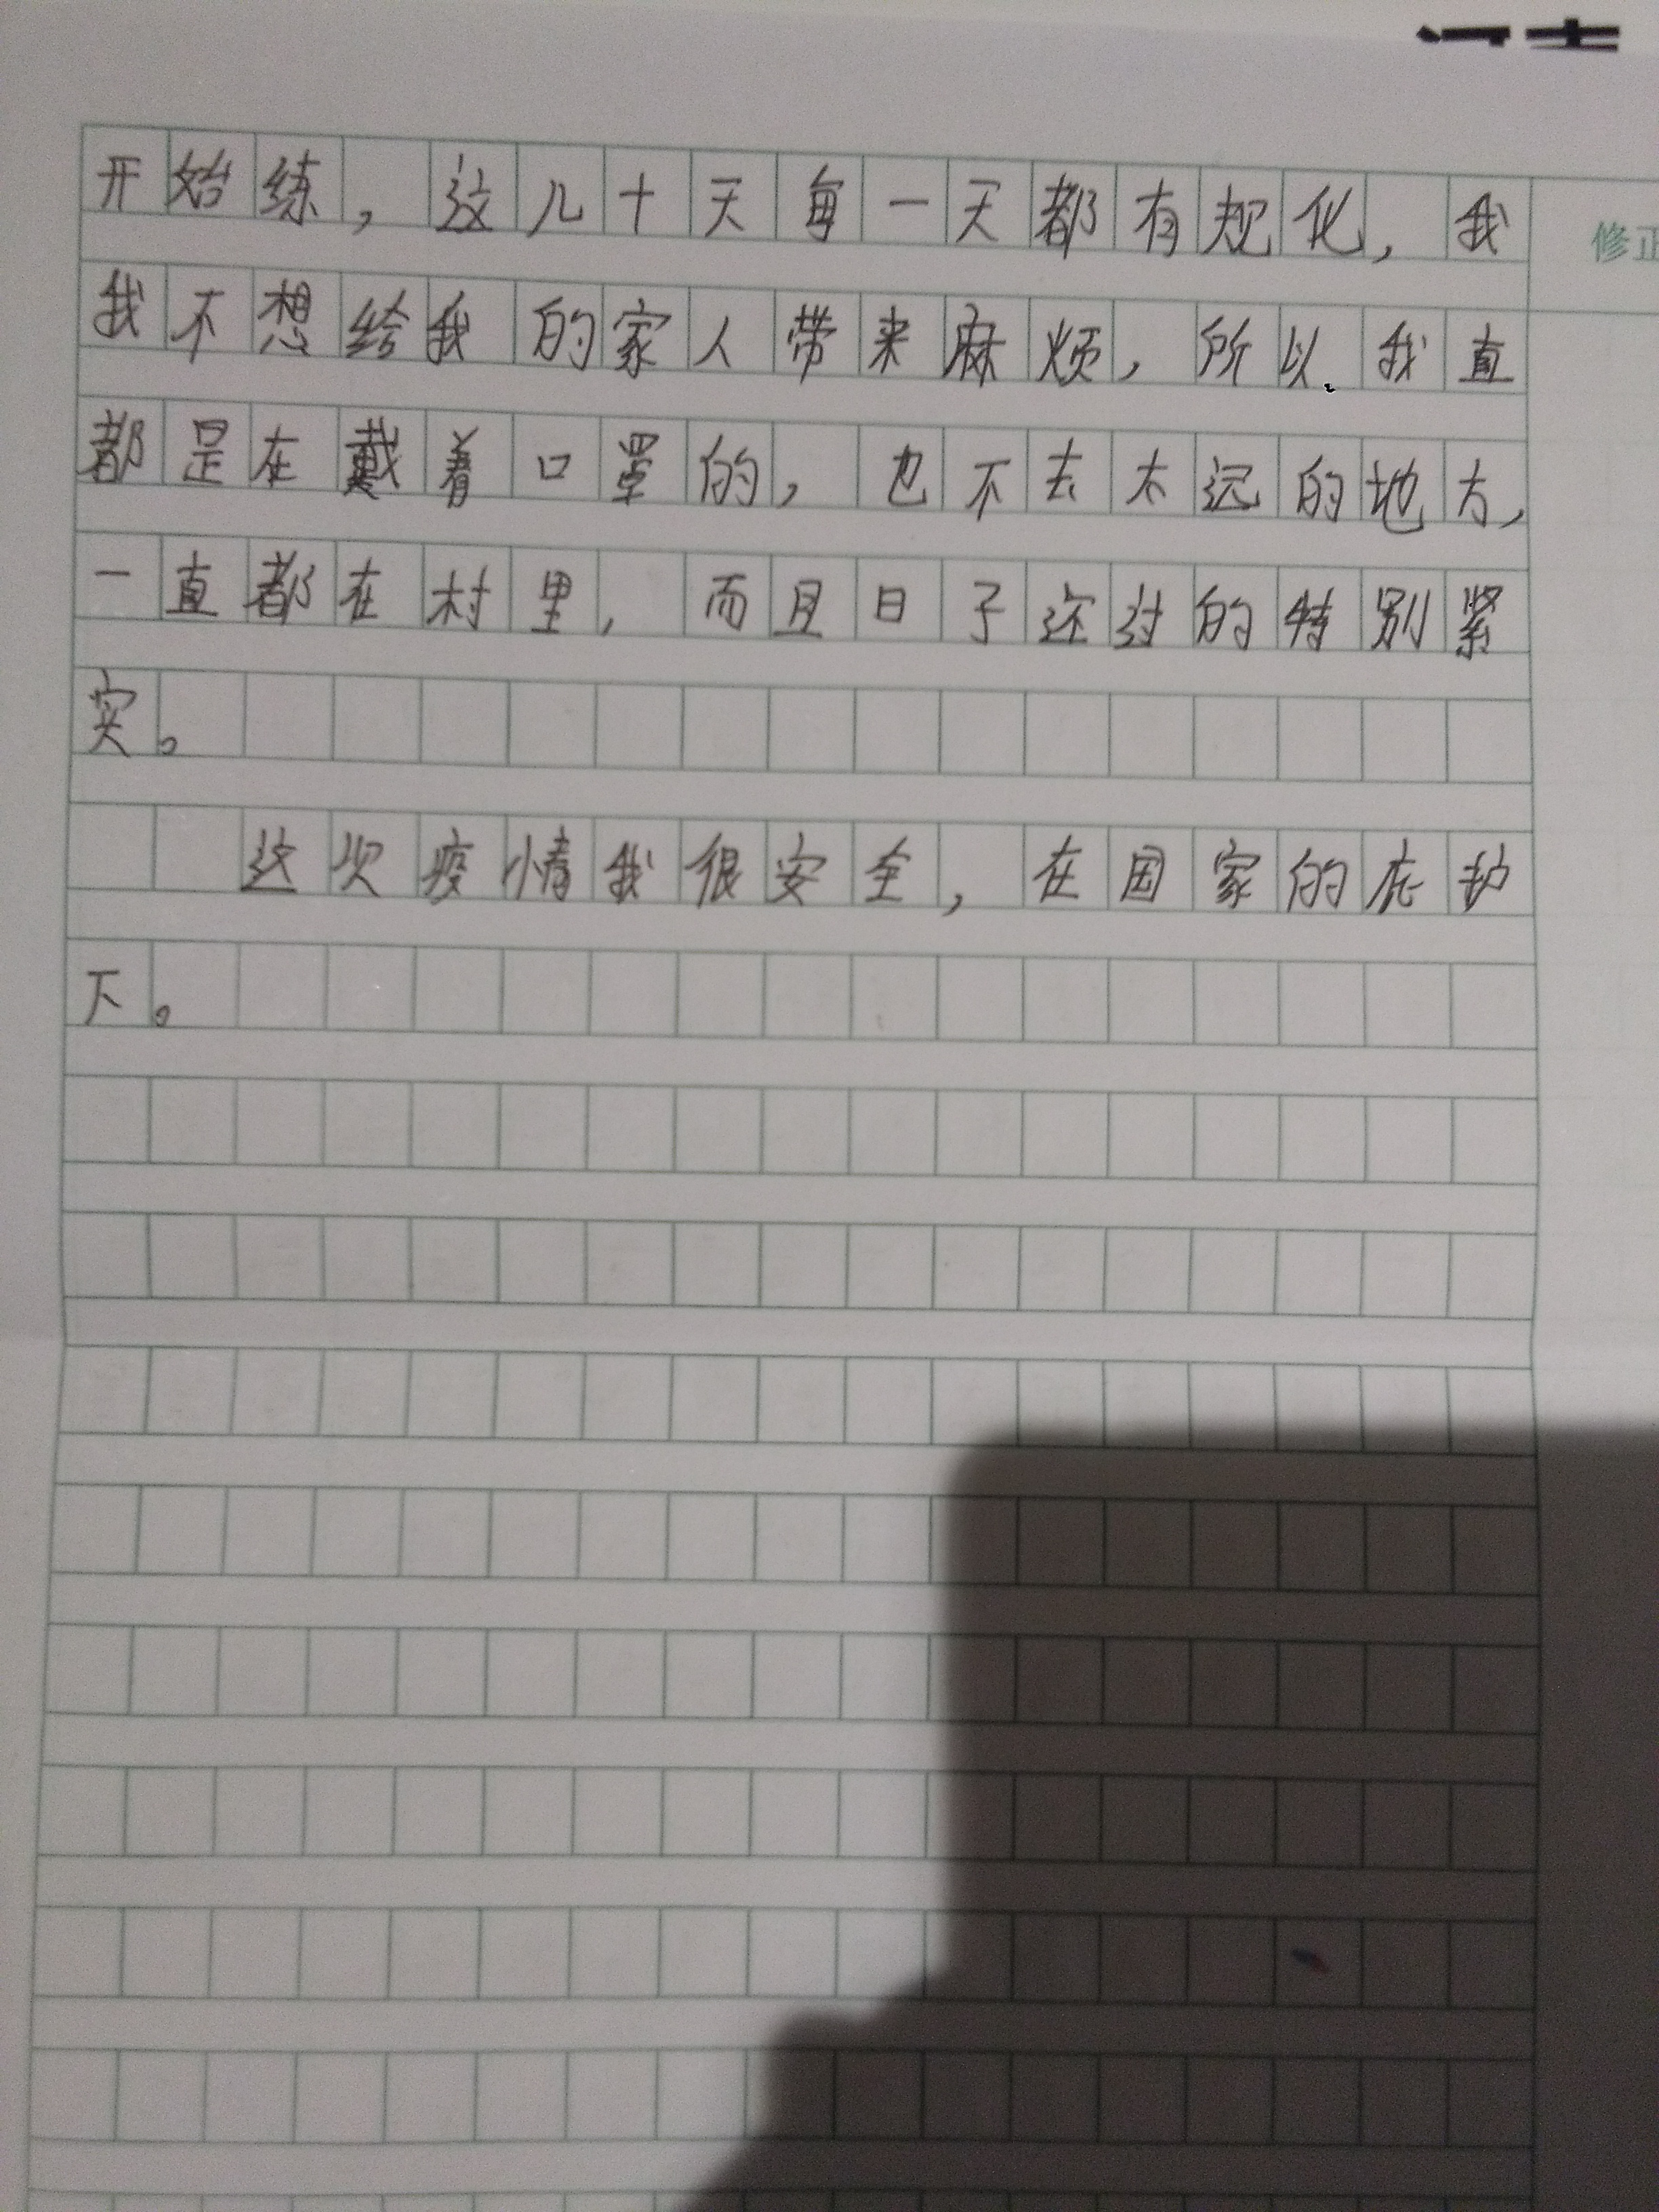 修正
开始练，这几十天每一天都有规化，我
我不想给我的家人带来麻烦，所以我直
都是在戴着口罩的，也不去太远的地方，
一直都在村里，而且日子还过的特别紧
实。
这次疫情我很安全，在国家的庇护
下。